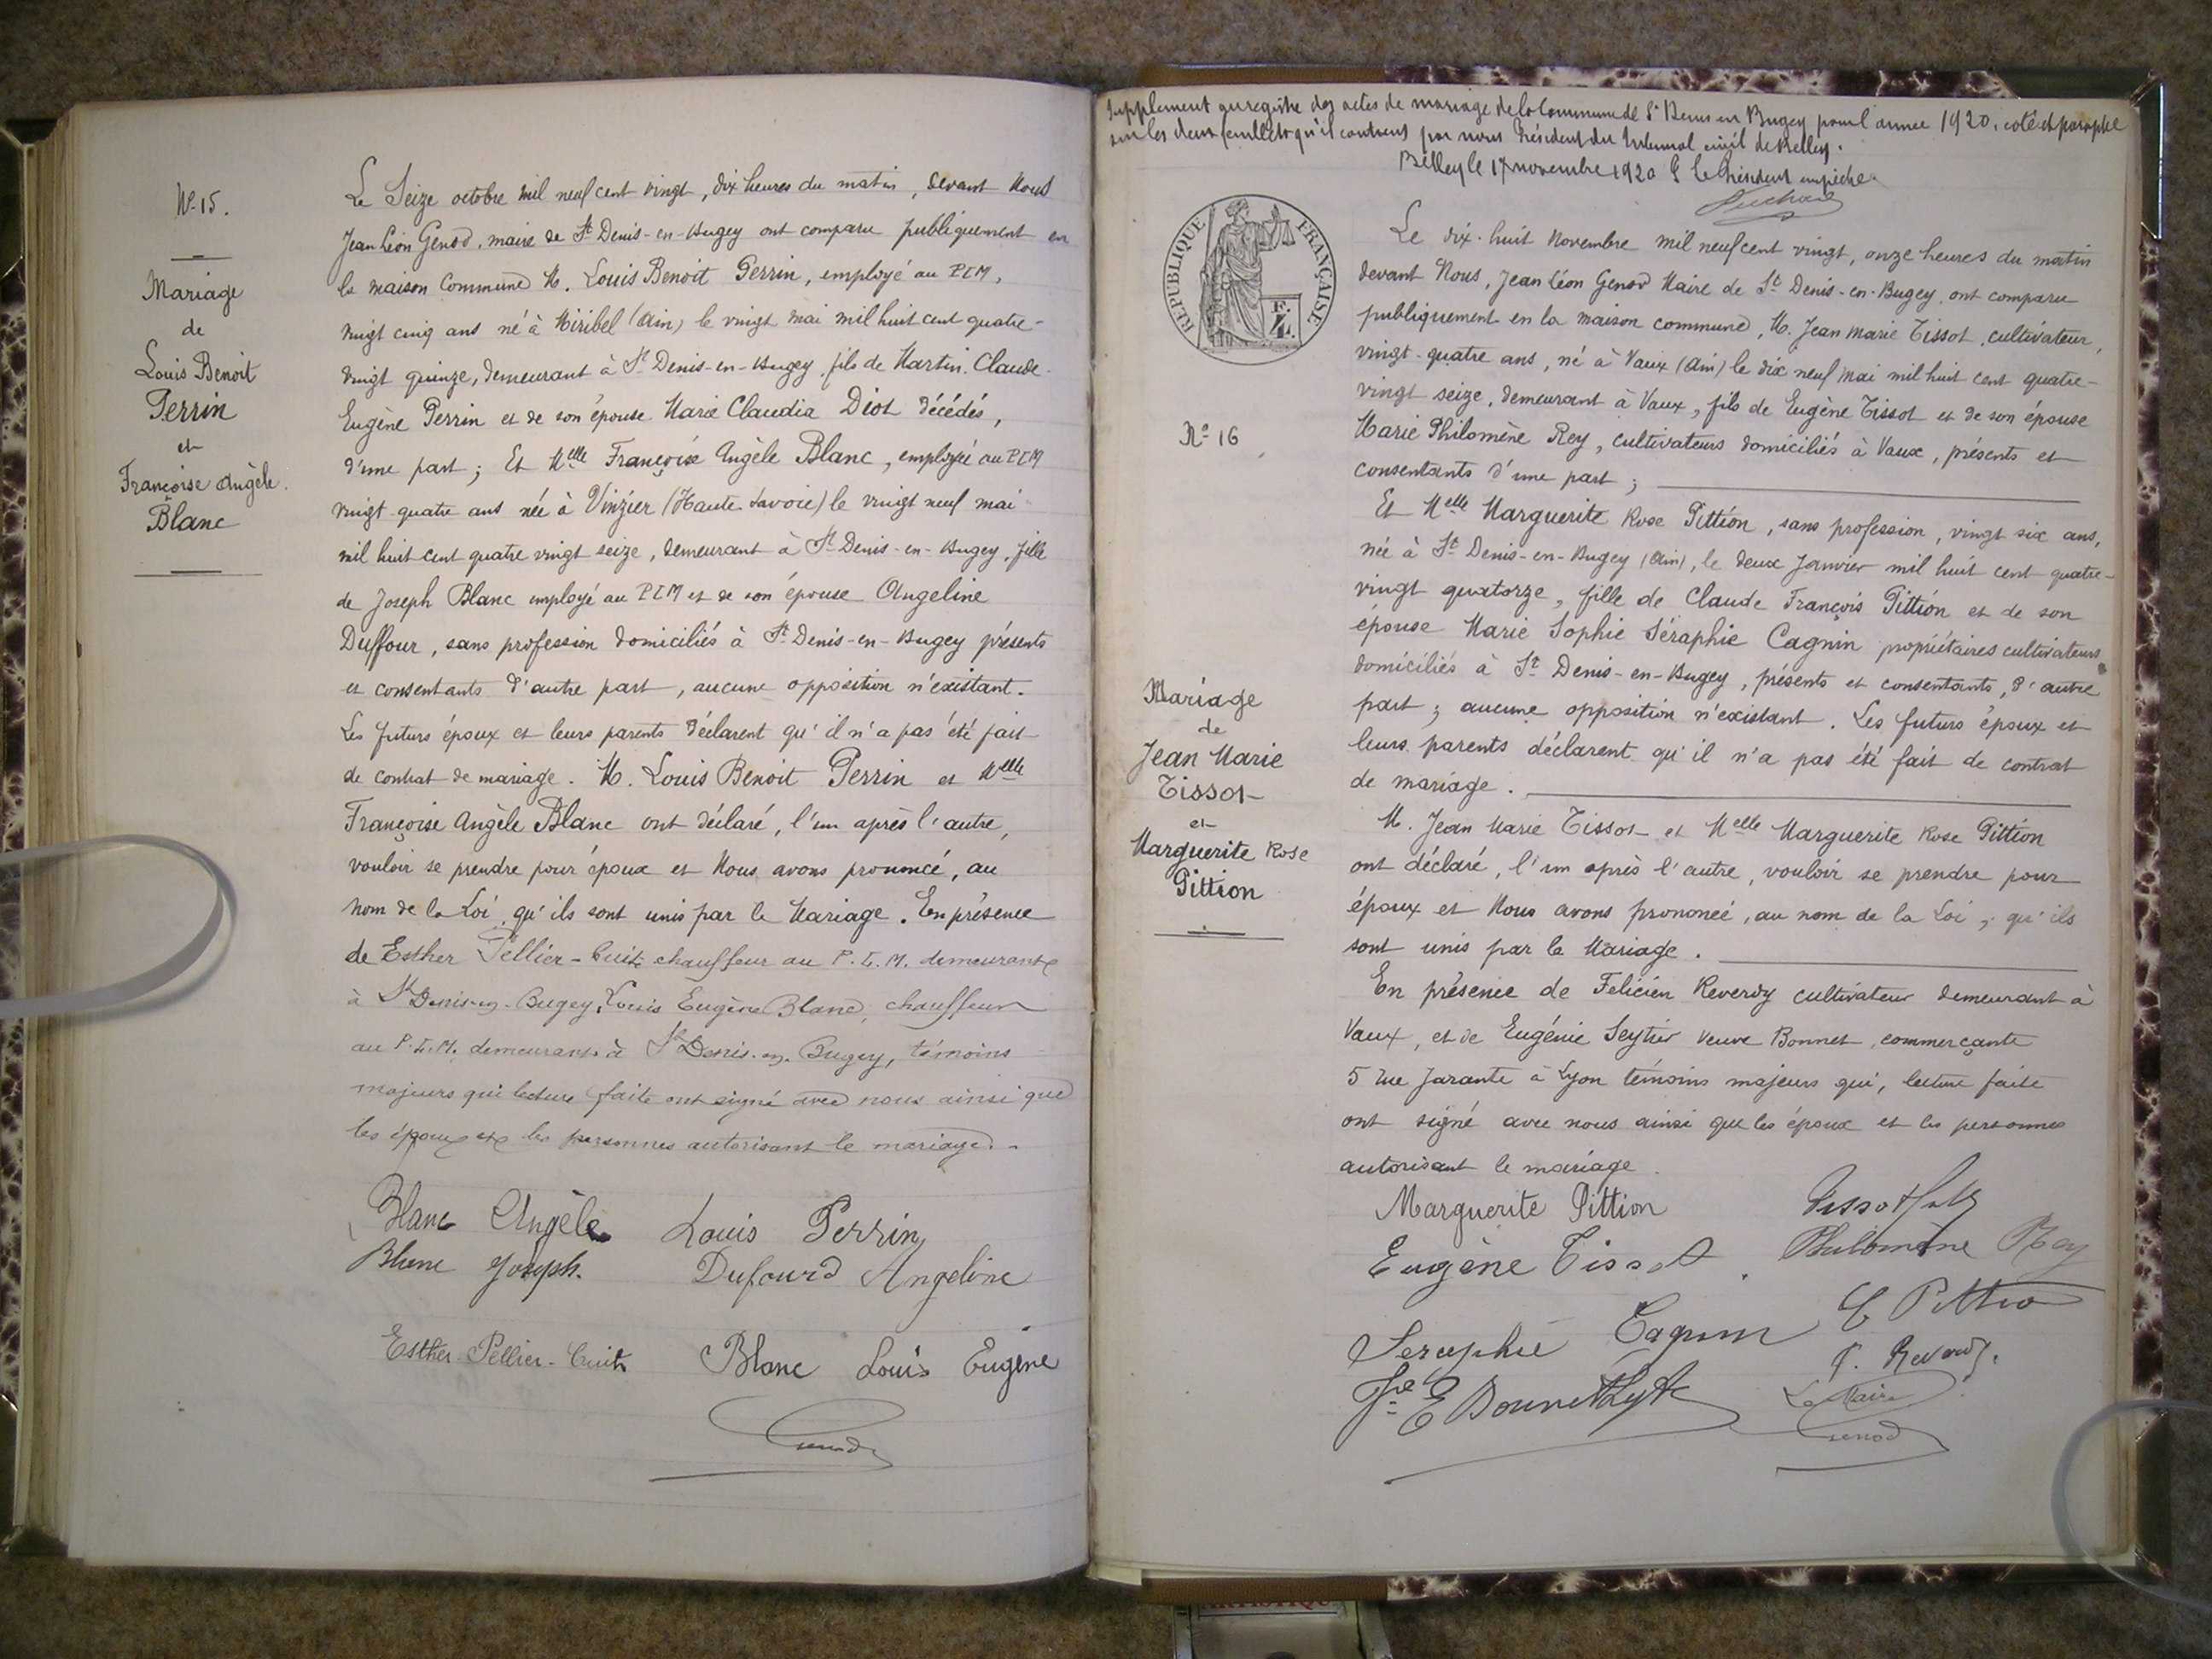 N° 15.
Mariage
de
Louis Benoit
Perrin
et
Françoise Angèle
Blanc
Le Seize octobre mil neuf cent vingt, dix heures du matin, devant Nous
Jean Léon Genod, maire de St Denis-en-Bugey ont comparu publiquement en
la maison Commune M. Louis Benoit Perrin, employé au PLM,
vingt cinq ans né à Miribel (Ain) le vingt mai mil huit cent quatre-
vingt quinze, demeurant à St Denis-en-Bugey, fils de Martin Claude
Eugène Perrin et de son épouse Marie Claudia Diot décédés,
d'une part ; Et Melle Françoise Angèle Blanc, employée au PLM
vingt-quatre ans née à Vinzier (Haute-Savoie) le vingt neuf mai
mil huit cent quatre vingt seize, demeurant à St Denis-en-Bugey, fille
de Joseph Blanc employé au PLM et de son épouse Angeline
Duffour, sans profession domiciliés à St Denis-en-Bugey présents
et consentants d'autre part, aucune opposition n'existant.
Les futurs époux et leurs parents déclarent qu'il n'a pas été fait
de contrat de mariage. M. Louis Benoit Perrin et Melle
Françoise Angèle Blanc ont déclaré, l'un après l'autre,
vouloir se prendre pour époux et Nous avons prononcé, au
nom de la Loi, qu'ils sont unis par le Mariage. En présence
de Esther Pellier-Cuit chauffeur au P.L.M. demeurant
à St Denis-en-Bugey, Louis Eugène Blanc, chauffeur
au P.L.M. demeurant à St Denis-en-Bugey, témoins
majeurs qui lecture faite ont signé avec nous ainsi que
les époux et les personnes autorisant le mariage.
Blanc Angèle Louis Perrin
Blanc Joseph. Dufourd Angeline
Esther Pellier-Cuit Blanc Louis Eugène
Genod
Supplément au registre des actes de mariage de la Commune de St Denis en Bugey pour l'année 1920, coté et paraphé
sur les deux feuillets qu'il contient par nous Président du Tribunal civil de Belley.
Belley le 17 novembre 1920 P le Président empêché
RÉPUBLIQUE FRANÇAISE
N° 16
Mariage
de
Jean Marie
Tissot
et
Marguerite Rose
Pittion
Le dix-huit Novembre mil neuf cent vingt, onze heures du matin
devant Nous, Jean Léon Genod Maire de St Denis-en-Bugey, ont comparu
publiquement en la maison commune, M. Jean Marie Tissot, cultivateur,
vingt-quatre ans, né à Vaux (Ain) le dix neuf mai mil huit cent quatre-
vingt seize, demeurant à Vaux, fils de Eugène Tissot et de son épouse
Marie Philomène Rey, cultivateurs domiciliés à Vaux, présents et
consentants d'une part ;
Et Melle Marguerite Rose Pittion, sans profession, vingt six ans,
née à St Denis-en-Bugey (Ain), le deux Janvier mil huit cent quatre-
vingt quatorze, fille de Claude François Pittion et de son
épouse Marie Sophie Séraphie Cagnin propriétaires cultivateurs
domiciliés à St Denis-en-Bugey, présents et consentants, d'autre
part ; aucune opposition n'existant. Les futurs époux et
leurs parents déclarent qu'il n'a pas été fait de contrat
de mariage.
M. Jean Marie Tissot et Melle Marguerite Rose Pittion
ont déclaré, l'un après l'autre, vouloir se prendre pour
époux et Nous avons prononcé, au nom de la Loi, qu'ils
sont unis par le Mariage.
En présence de Felicien Reverdy cultivateur demeurant à
Vaux, et de Eugénie Seytier veuve Bonnet, commerçante
5 rue Jarante à Lyon témoins majeurs qui, lecture faite
ont signé avec nous ainsi que les époux et les personnes
autorisant le mariage.
Marguerite Pittion Tissot
Eugène Tissot Philomène Rey
Seraphie Cagnin C Pittion
F. Reverdy.
Vve E Bonnet
Le Maire
Genod
ARTISTIQUE